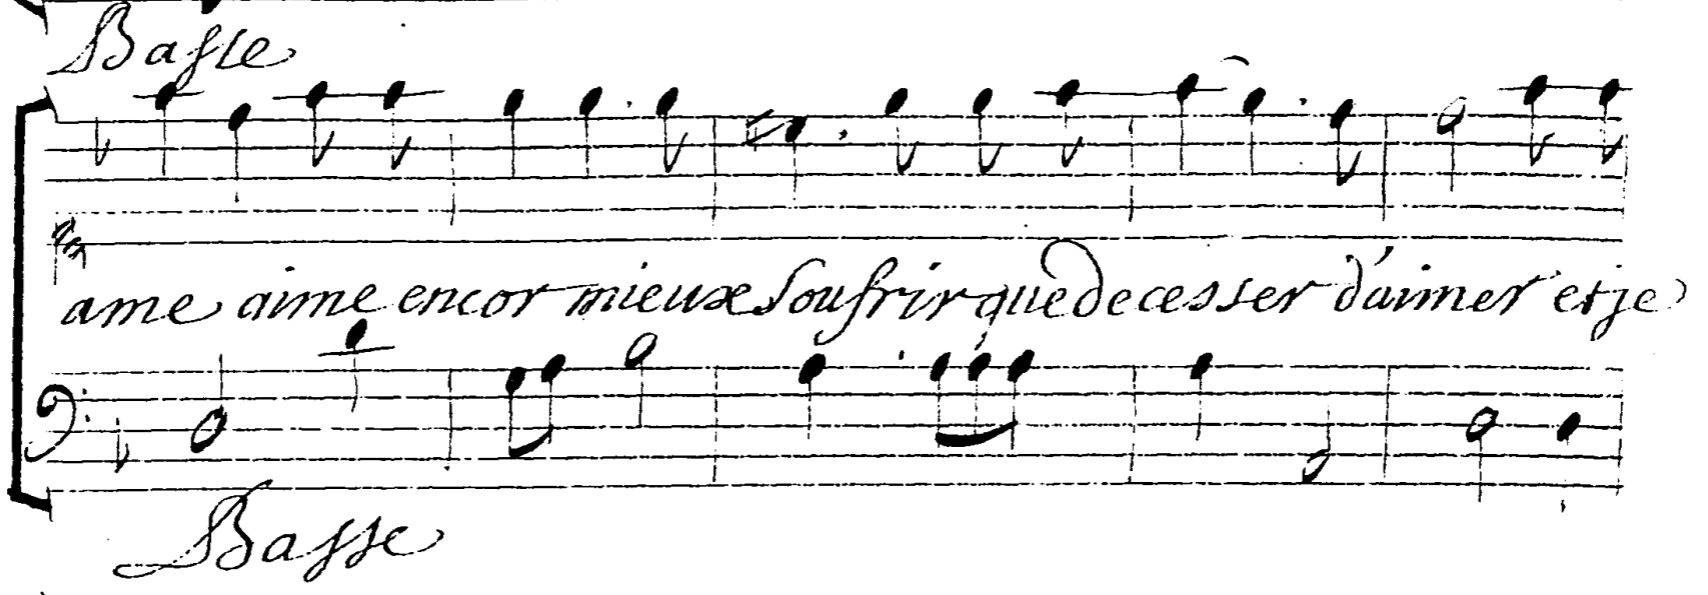 Basse
ame aime encor mieux soufrir que de cesser d'aimer et je
Basse